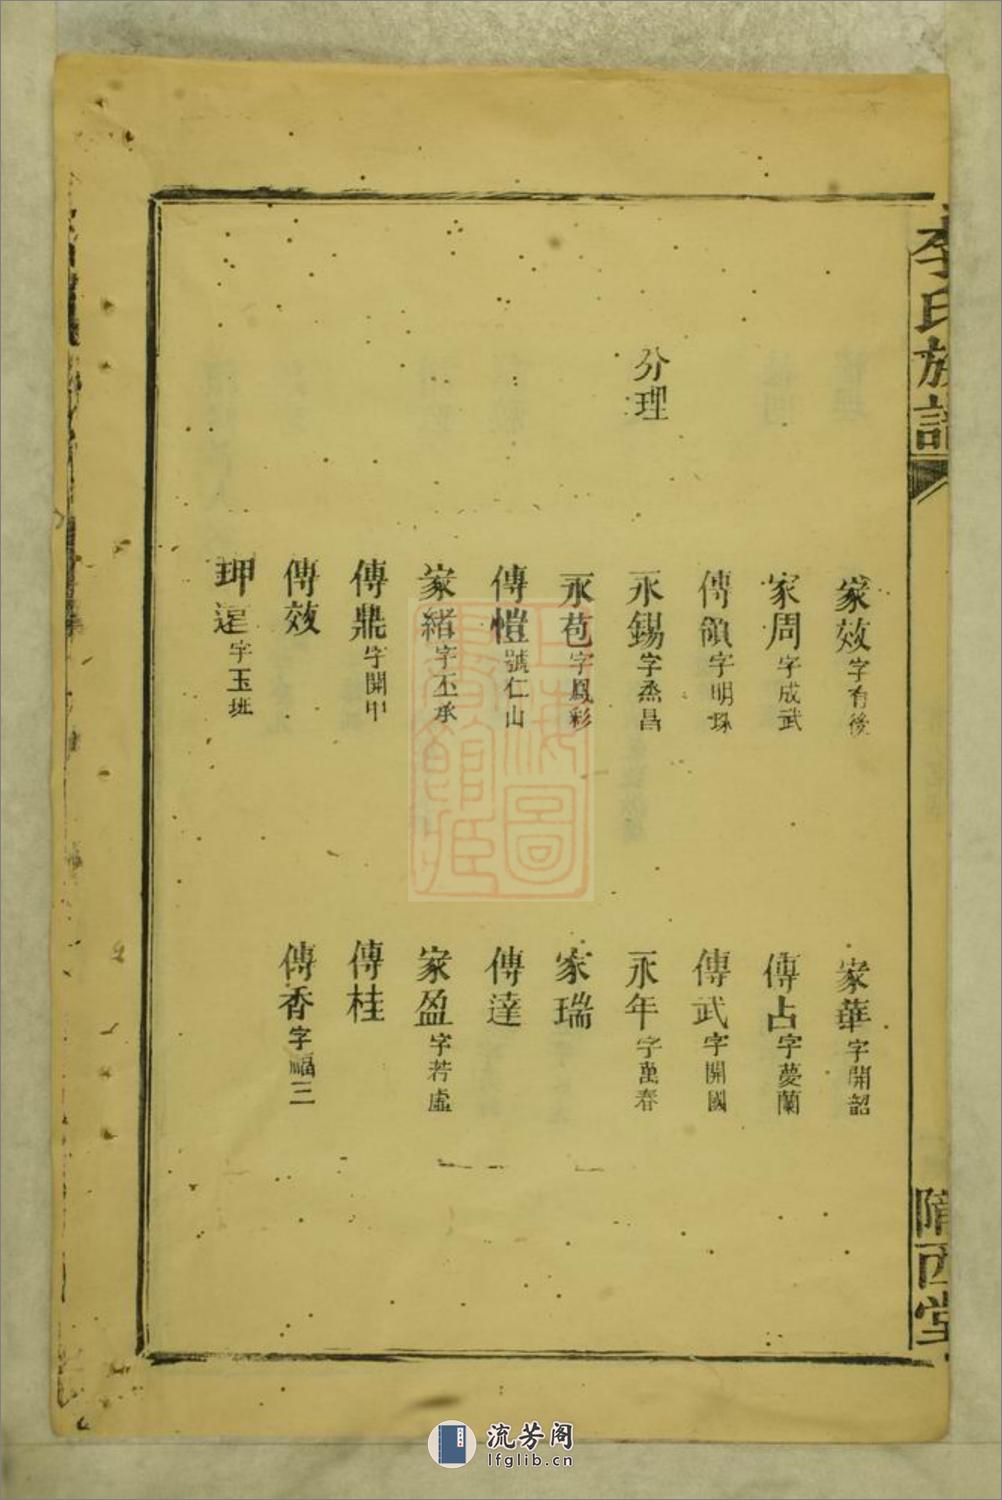 李氏族譜
隴西堂
家效字有後
家華字開韶
家周字成武
傳占字夢蘭
傳領字明珠
傳武字開國
分理
永錫字烝昌
永年字萬春
永苞字鳳彩
家瑞
傳愷號仁山
傳達
家緒字丕承
家盈字若虛
傳鼎字開甲
傳桂
傳效
傳香字福三
字玉班
上海圖書館藏
流芳阁
lfglib.cn